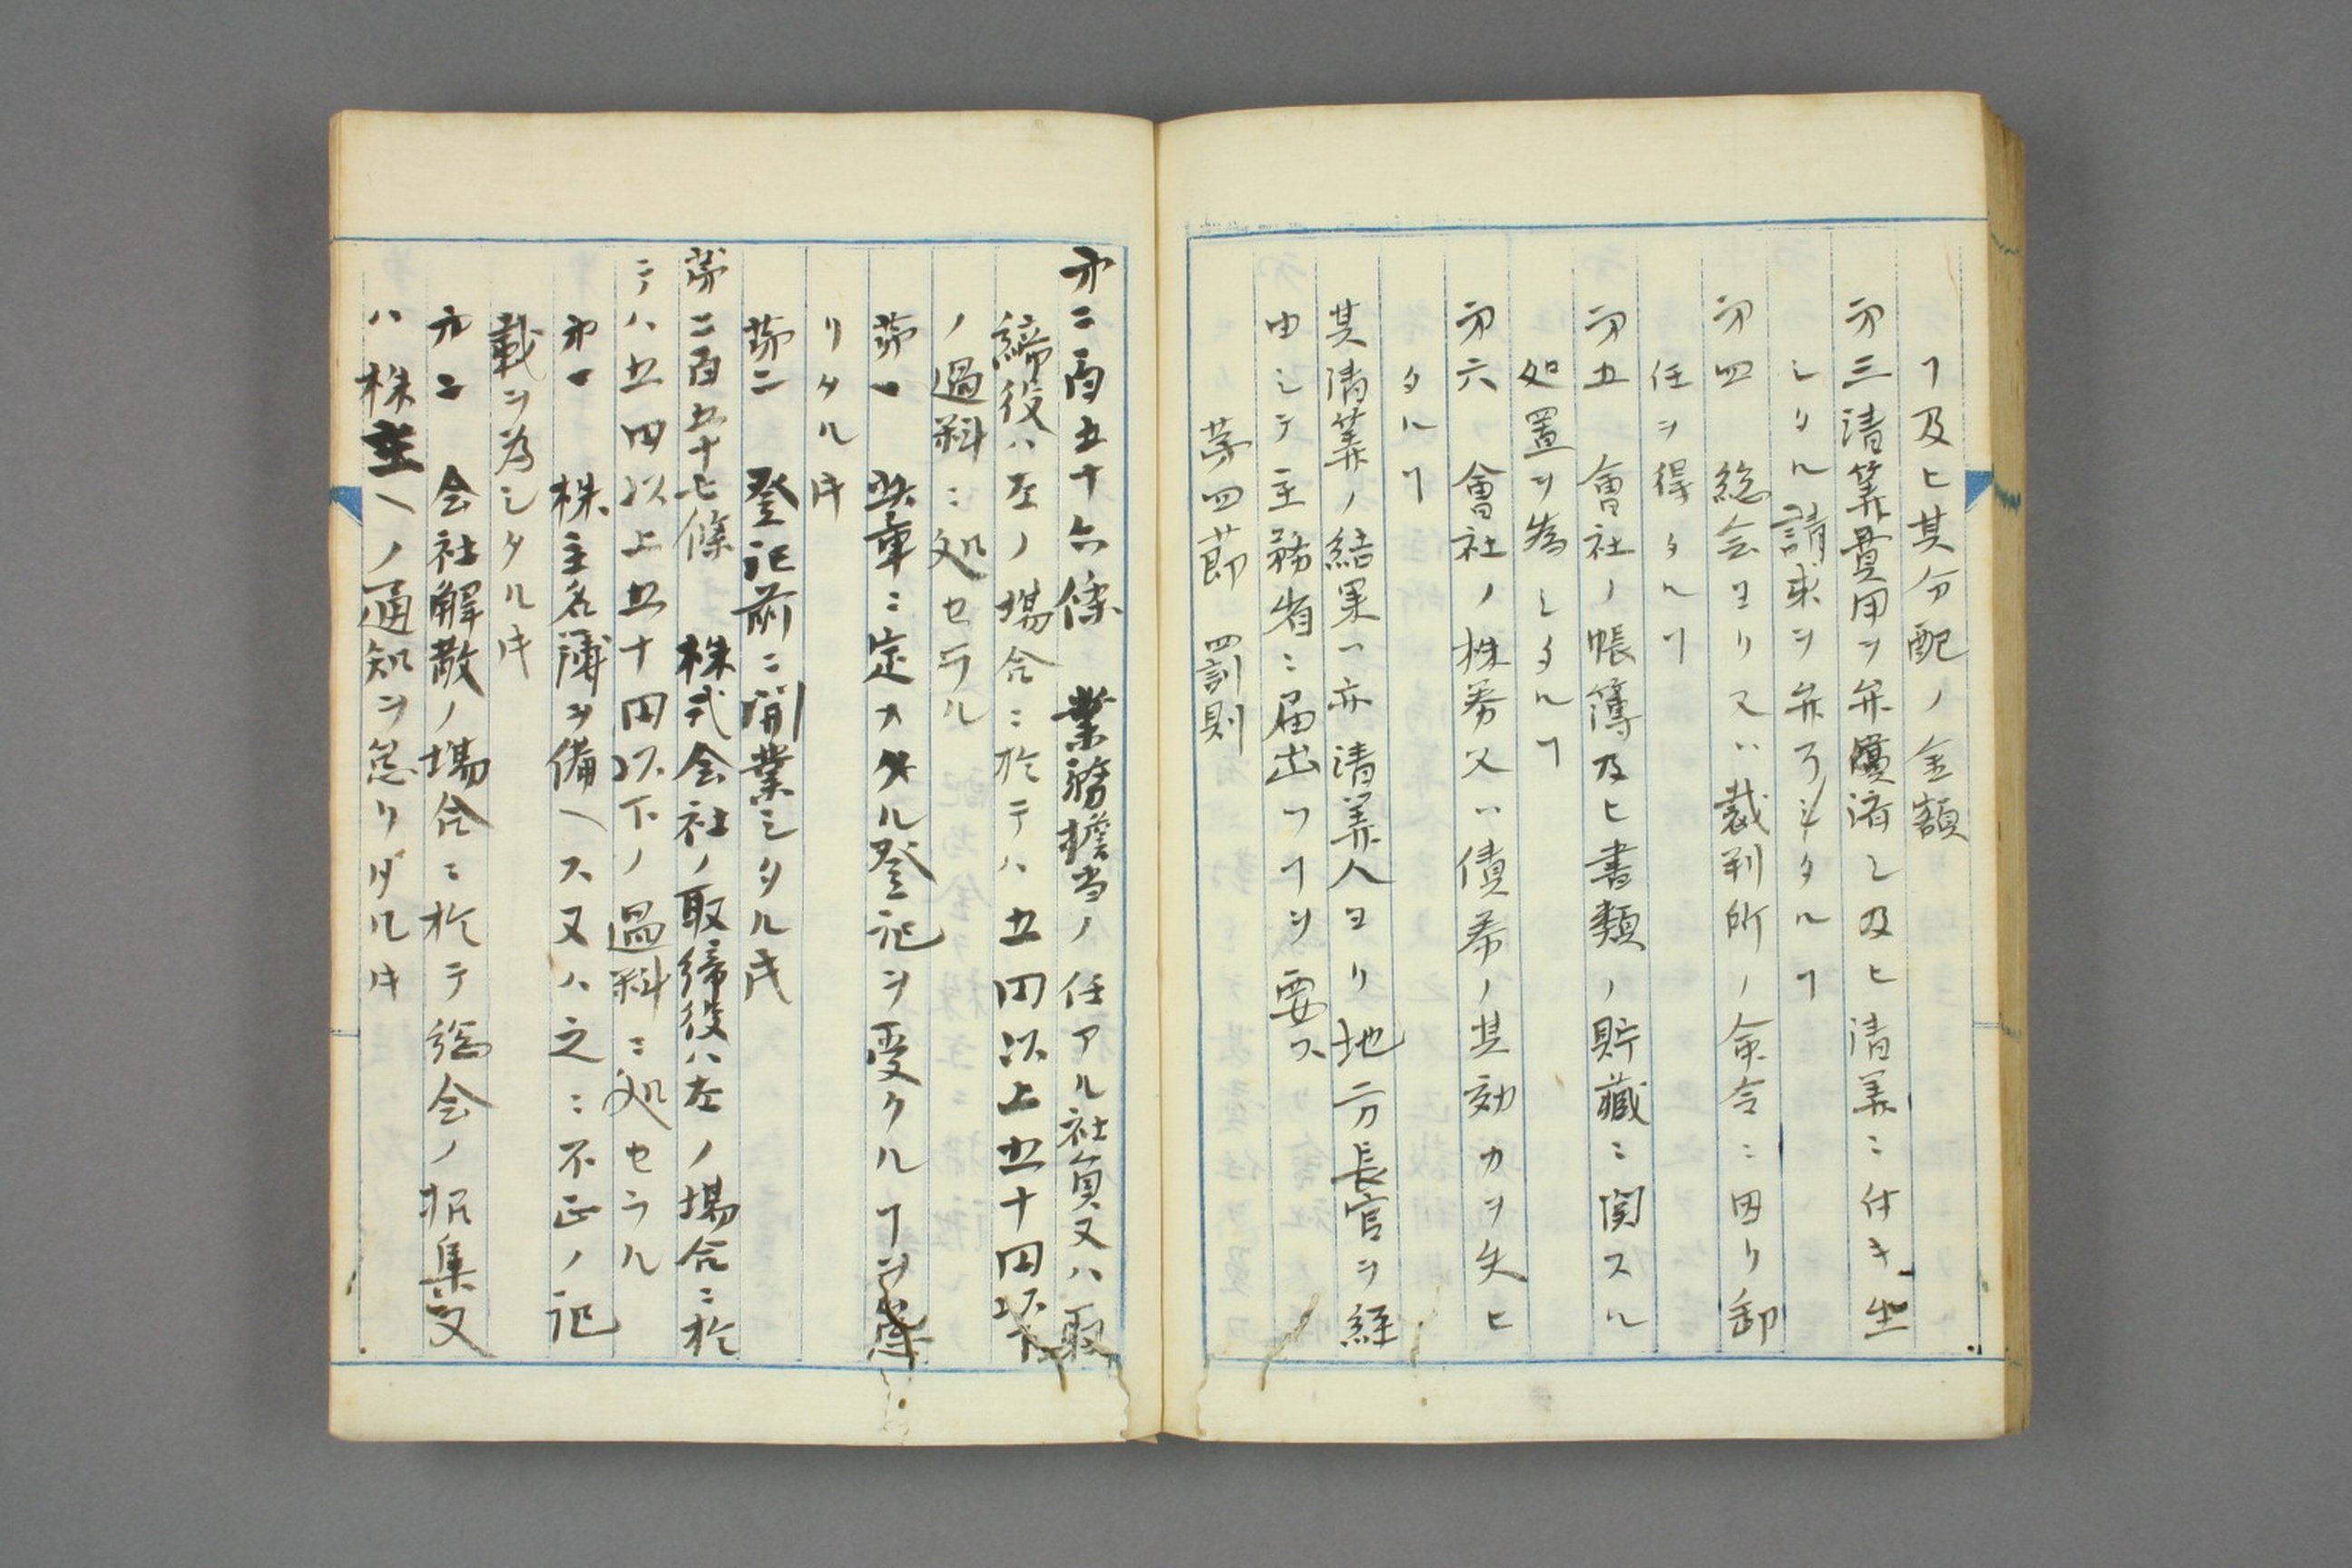 ヿ及ヒ其分配ノ金額
第三 清算費用ヲ弁償済シ及ヒ清算ニ付キ生
シタル請求ヲ弁了シタルヿ
第四 総会ヨリ又ハ裁判所ノ命令ニ因リ卸
任ヲ得タルヿ
第五 會社ノ帳簿及ヒ書類ノ貯藏ニ関スル
処置ヲ為シタルヿ
第六 會社ノ株券又ハ債券ノ其効力ヲ失ヒ
タルヿ
其清算ノ結果ハ亦清算人ヨリ地方長官ヲ経
由シテ主務省ニ届出ツヿヲ要ス
第四節 罰則
第二百五十六條 業務擔当ノ任アル社員又ハ取
締役ハ左ノ場合ニ於テハ五円以上五十円以下
ノ過料ニ処セラル
第一 此章ニ定メタル登記ヲ受クルヿヲ怠
リタルトキ
第二 登記前ニ開業シタルトキ
第二百五十七條 株式会社ノ取締役ハ左ノ場合ニ於
テハ五円以上五十円以下ノ過料ニ処セラル
第一 株主名簿ヲ備ヘス又ハ之ニ不正ノ記
載ヲ為シタルトキ
第二 会社解散ノ場合ニ於テ総会ノ招集又
ハ株主ヘノ通知ヲ怠リタルトキ